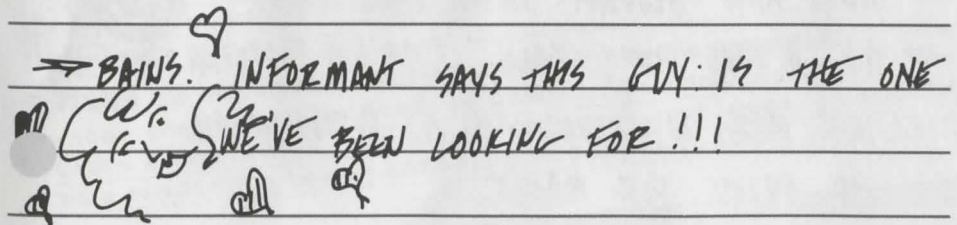 → BAINS. INFORMANT SAYS THIS GUY. IS THE ONE
WE'VE BEEN LOOKING FOR!!!